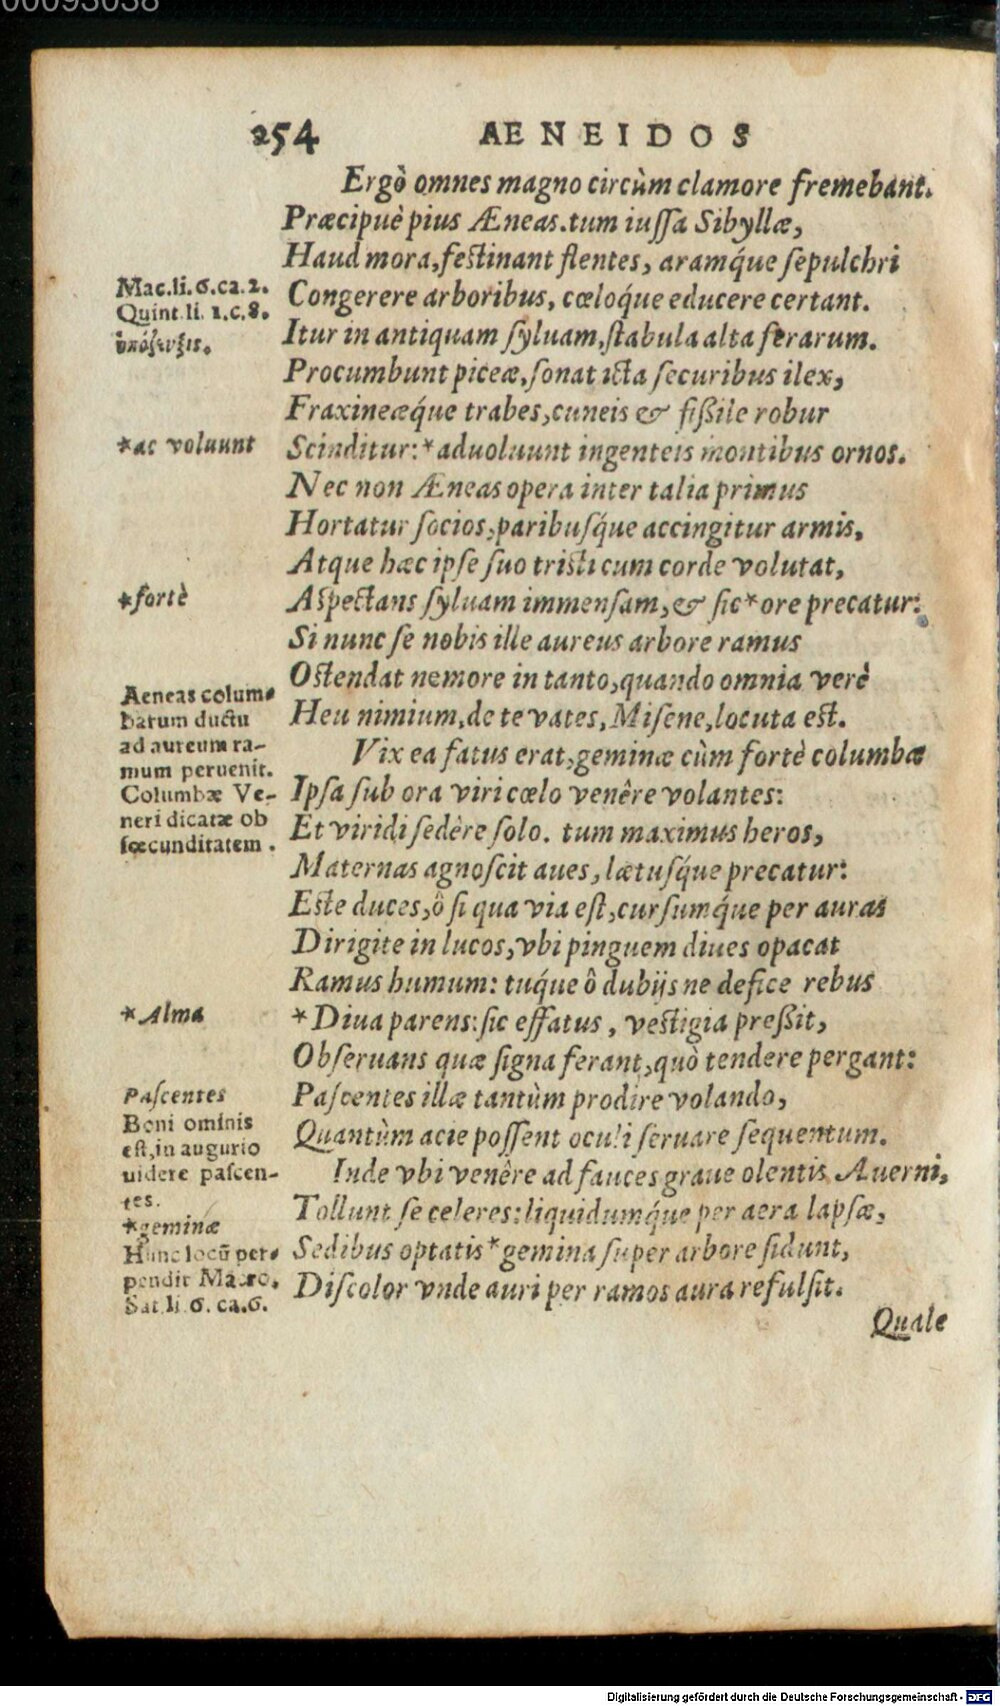 00093038
254 AENEIDOS
Ergò omnes magno circùm clamore fremebant.
Præcipuè pius Æneas. tum iuſſa Sibyllæ,
Haud mora, feſtinant flentes, aramq́ue ſepulchri
Mac. li. 6. ca. 2.
Congerere arboribus, cœloq́ue educere certant.
Quint. li. 1. c. 8.
Itur in antiquam ſyluam, ſtabula alta ferarum.
Procumbunt piceæ, ſonat icta ſecuribus ilex,
Fraxineæq́ue trabes, cuneis & fißile robur
*ac voluunt
Scinditur: *aduoluunt ingenteis montibus ornos.
Nec non Æneas opera inter talia primus
Hortatur ſocios, paribuſq́ue accingitur armis.
Atque hæc ipſe ſuo triſti cum corde volutat,
*fortè
Aſpectans ſyluam immenſam, & ſic *ore precatur:
Si nunc ſe nobis ille aureus arbore ramus
Oſtendat nemore in tanto, quando omnia verè
Heu nimium, de te vates, Miſene, locuta eſt.
Aeneas colum-
barum ductu
ad aureum ra-
mum peruenit.
Columbæ Ve-
neri dicatæ ob
fœcunditatem.
Vix ea fatus erat, geminæ cùm fortè columbæ
Ipſa ſub ora viri cœlo venêre volantes:
Et viridi ſedère ſolo. tum maximus heros,
Maternas agnoſcit aues, lætuſq́ue precatur:
Eſte duces, ô ſi qua via eſt, curſumq́ue per auras
Dirigite in lucos, vbi pinguem diues opacat
Ramus humum: tuq́ue ô dubijs ne defice rebus
*Alma
*Diua parens: ſic effatus, veſtigia preßit,
Obſeruans quæ ſigna ferant, quò tendere pergant:
Paſcentes
Boni ominis
eſt, in augurio
uidere paſcen-
tes.
Paſcentes illæ tantùm prodire volando,
Quantùm acie poſſent oculi ſeruare ſequentum.
Inde vbi venêre ad fauces graue olentis Auerni,
Tollunt ſe celeres: liquidumq́ue per aera lapſæ,
*geminæ
Hunc locũ per-
pendit Macro.
Sat. li. 6. ca. 6.
Sedibus optatis *gemina ſuper arbore ſidunt,
Diſcolor vnde auri per ramos aura refulſit.
Quale
Digitalisierung gefördert durch die Deutsche Forschungsgemeinschaft - DFG